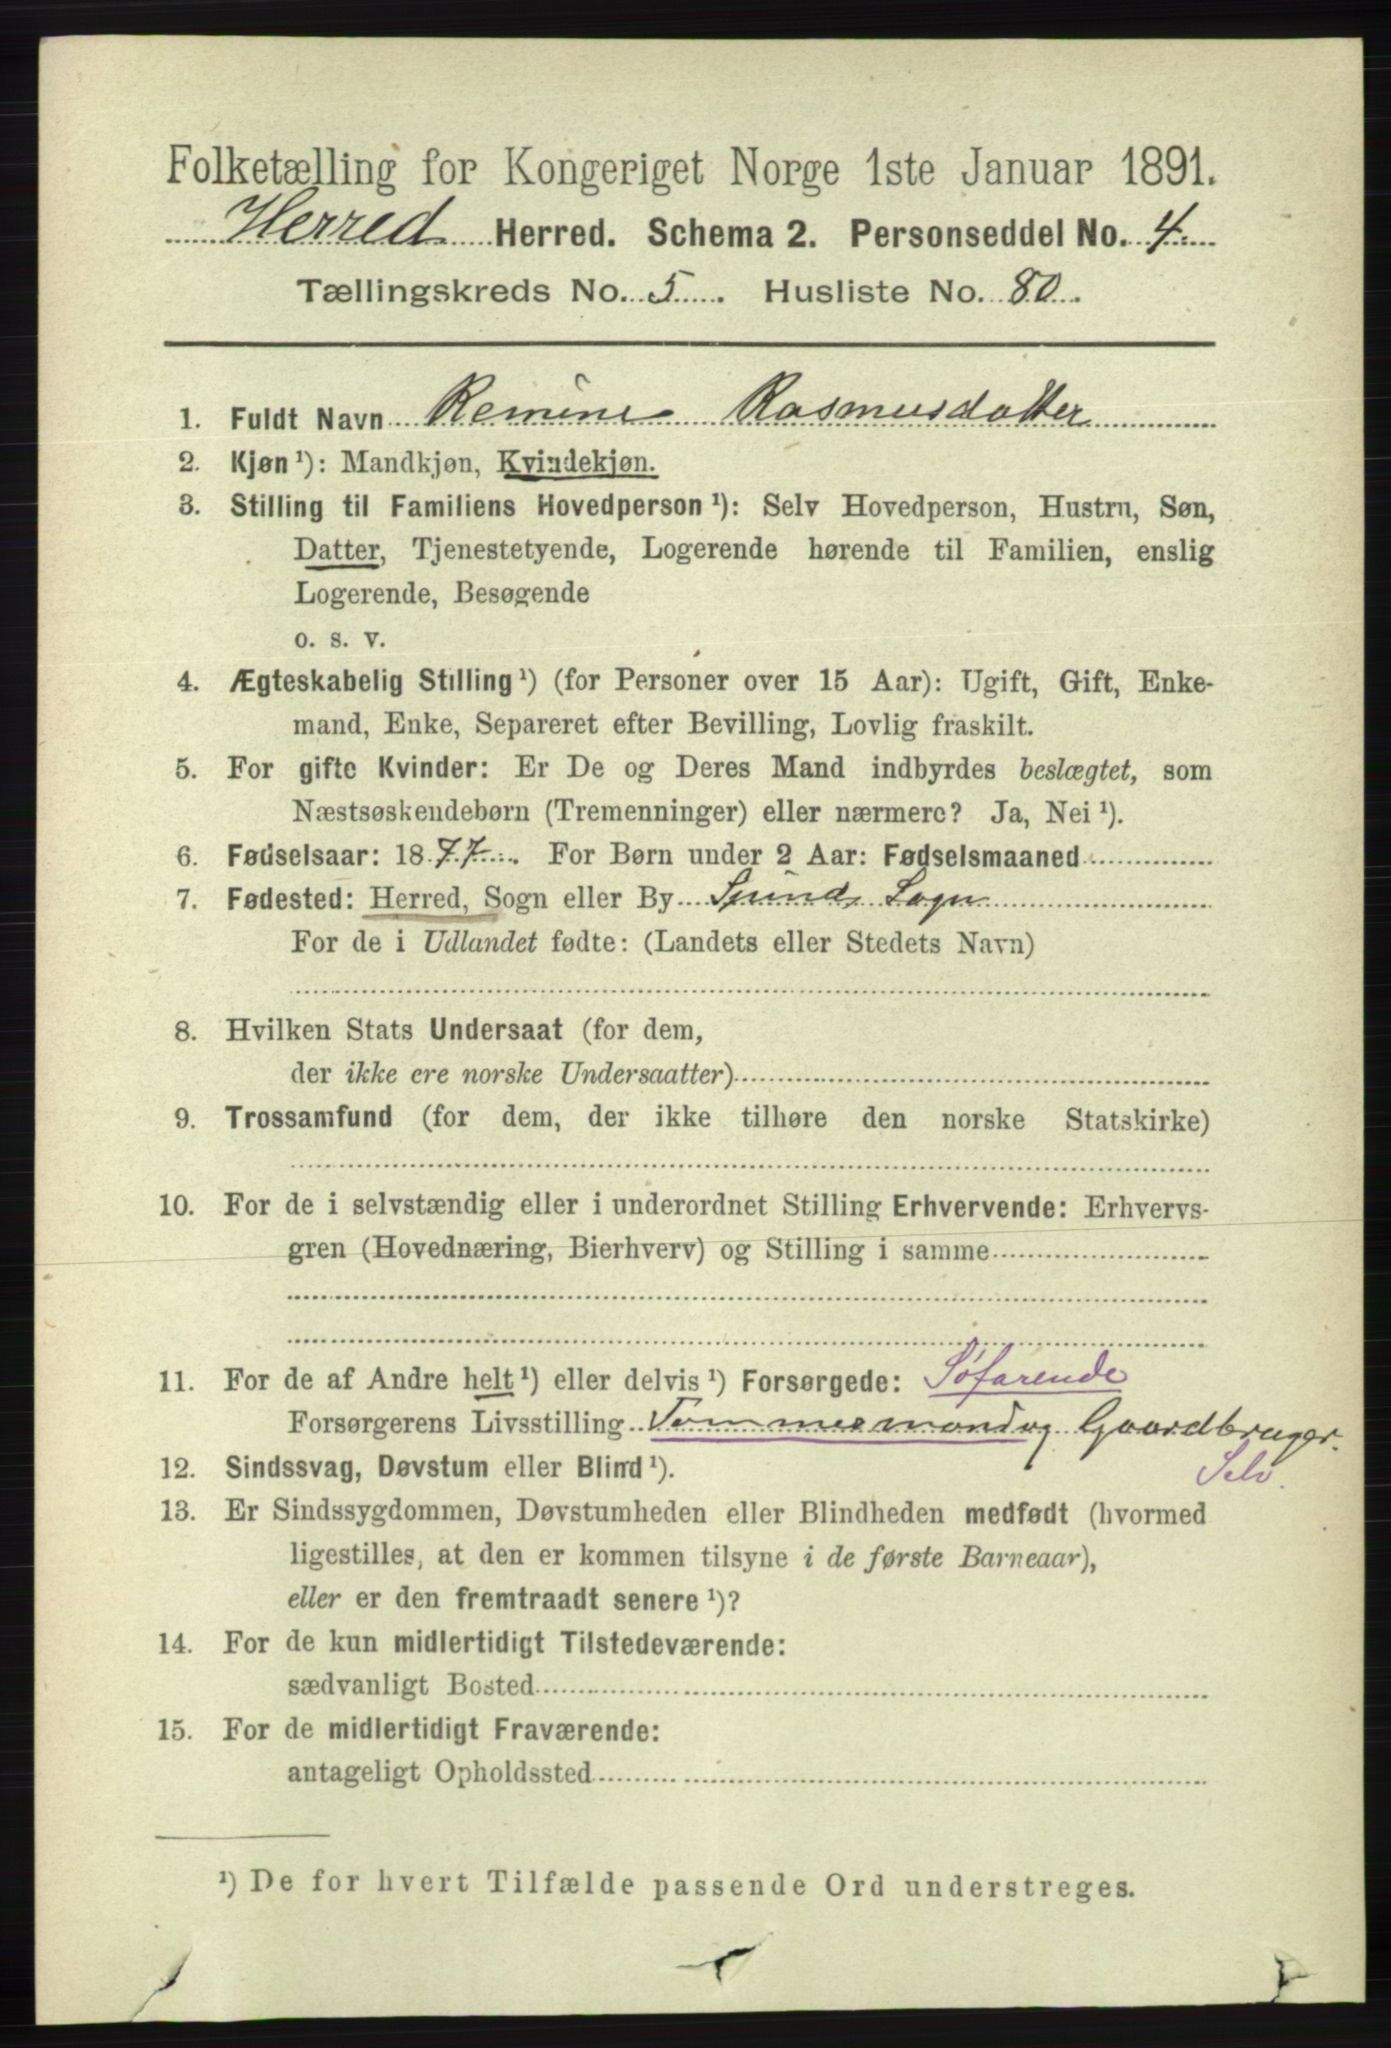 Folketælling for Kongeriget Norge 1ste Januar 1891.
Herred Herred. Schema 2. Personseddel No. 4.
Tællingskreds No. 5. Husliste No. 80.
1. Fuldt Navn Remine Rasmusdatter
2. Kjøn ¹): Mandkjøn, Kvindekjøn.
3. Stilling til Familiens Hovedperson ¹): Selv Hovedperson, Hustru, Søn,
Datter, Tjenestetyende, Logerende hørende til Familien, enslig
Logerende, Besøgende
o. s. v.
4. Ægteskabelig Stilling ¹) (for Personer over 15 Aar): Ugift, Gift, Enke-
mand, Enke, Separeret efter Bevilling, Lovlig fraskilt.
5. For gifte Kvinder: Er De og Deres Mand indbyrdes beslægtet, som
Næstsøskendebørn (Tremenninger) eller nærmere? Ja, Nei ¹).
6. Fødselsaar: 1877. For Børn under 2 Aar: Fødselsmaaned
7. Fødested: Herred, Sogn eller By Spinds Sogn
For de i Udlandet fødte: (Landets eller Stedets Navn)
8. Hvilken Stats Undersaat (for dem,
der ikke ere norske Undersaatter)
9. Trossamfund (for dem, der ikke tilhøre den norske Statskirke)
10. For de i selvstændig eller i underordnet Stilling Erhvervende: Erhvervs-
gren (Hovednæring, Bierhverv) og Stilling i samme
Søfarende
11. For de af Andre helt ¹) eller delvis ¹) Forsørgede:
Forsørgerens Livsstilling Tømmermand og Gaardbruger.
Selv.
12. Sindssvag, Døvstum eller Blind ¹).
13. Er Sindssygdommen, Døvstumheden eller Blindheden medfødt (hvormed
ligestilles, at den er kommen tilsyne i de første Barneaar),
eller er den fremtraadt senere ¹)?
14. For de kun midlertidigt Tilstedeværende:
sædvanligt Bosted
15. For de midlertidigt Fraværende:
antageligt Opholdssted
¹) De for hvert Tilfælde passende Ord understreges.